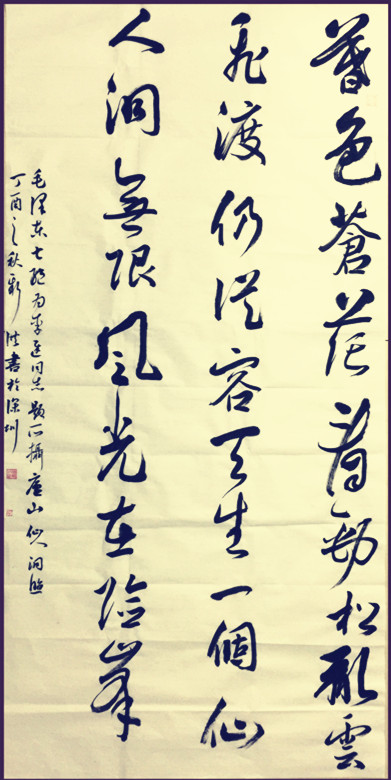 暮色蒼茫看勁松亂雲
飛渡仍從容天生一個仙
人洞無限風光在險峯
毛澤東七絕為李進同志題所攝廬山仙人洞照
丁酉之秋 書於深圳